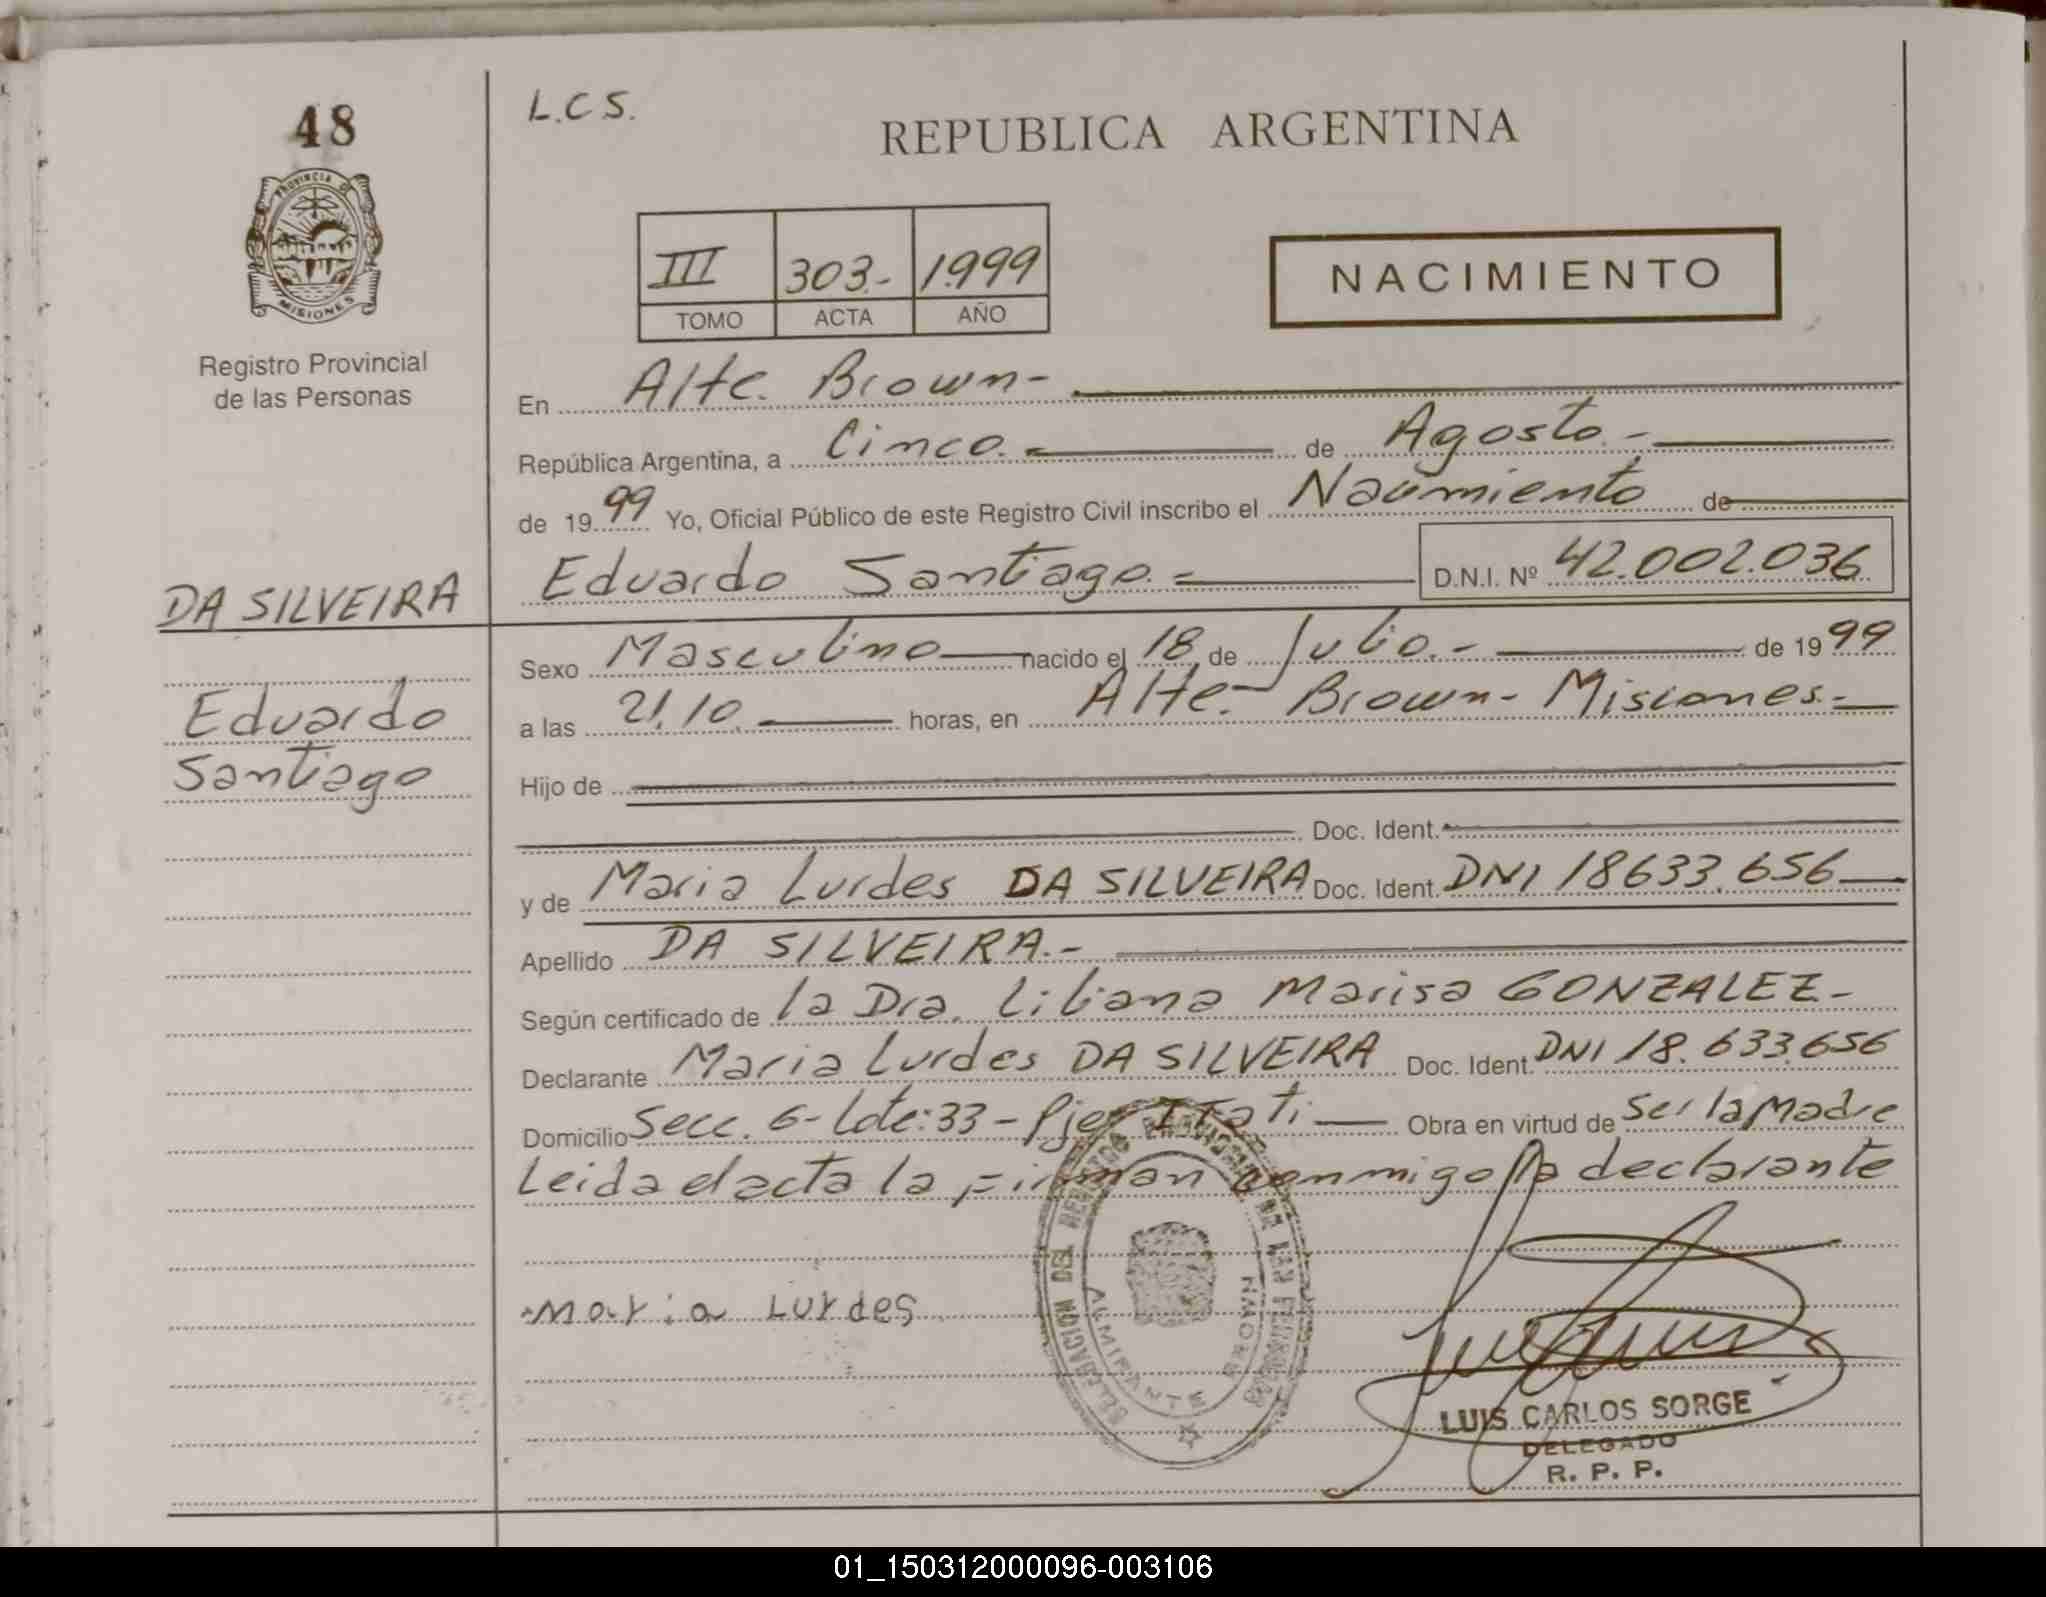 48
PROVINCIA DE
MISIONES
Registro Provincial
de las Personas
DA SILVEIRA
Eduardo
Santiago
L.C.S.
REPUBLICA ARGENTINA
III 303.- 1.999
TOMO ACTA AÑO
NACIMIENTO
En Alte. Brown-
República Argentina, a Cinco.- de Agosto.-
de 19 99 Yo, Oficial Público de este Registro Civil inscribo el Nacimiento de
Eduardo Santiago.= D.N.I. Nº 42.002.036
Sexo Masculino nacido el 18 de Julio.- de 19 99
a las 21,10. horas, en Alte.- Brown- Misiones.-
Hijo de
Doc. Ident.
y de Maria Lurdes DA SILVEIRA Doc. Ident. DNI 18633.656
Apellido DA SILVEIRA.-
Según certificado de la Dra. Liliana Marisa GONZALEZ-
Declarante Maria Lurdes DA SILVEIRA Doc. Ident. DNI 18.633.656
Domicilio Secc. 6- Lote:33- Pje. Itati Obra en virtud de ser la Madre
Leida el acta la firman conmigo la declarante
maria Lurdes
ALMIRANTE BROWN
LUIS CARLOS SORGE
DELEGADO
R. P. P.
01_150312000096-003106